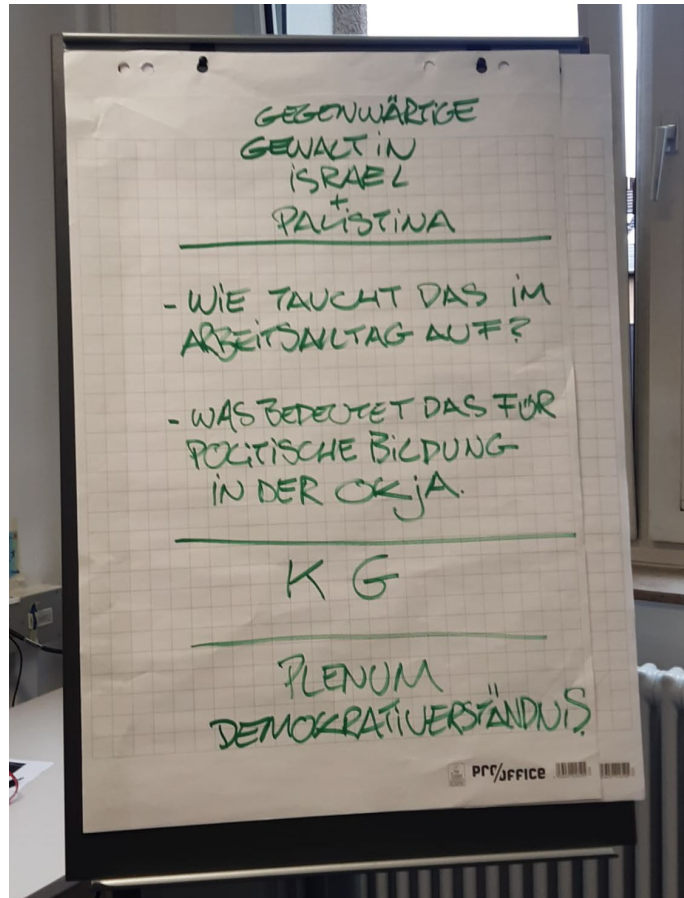 GEGENWÄRTIGE
GEWALT IN
ISRAEL
+
PALÄSTINA
- WIE TAUCHT DAS IM
ARBEITSALLTAG AUF?
- WAS BEDEUTET DAS FÜR
POLITISCHE BILDUNG
IN DER OKJA.
K G
PLENUM
DEMOKRATIVERSTÄNDNIS
PRO/OFFICE